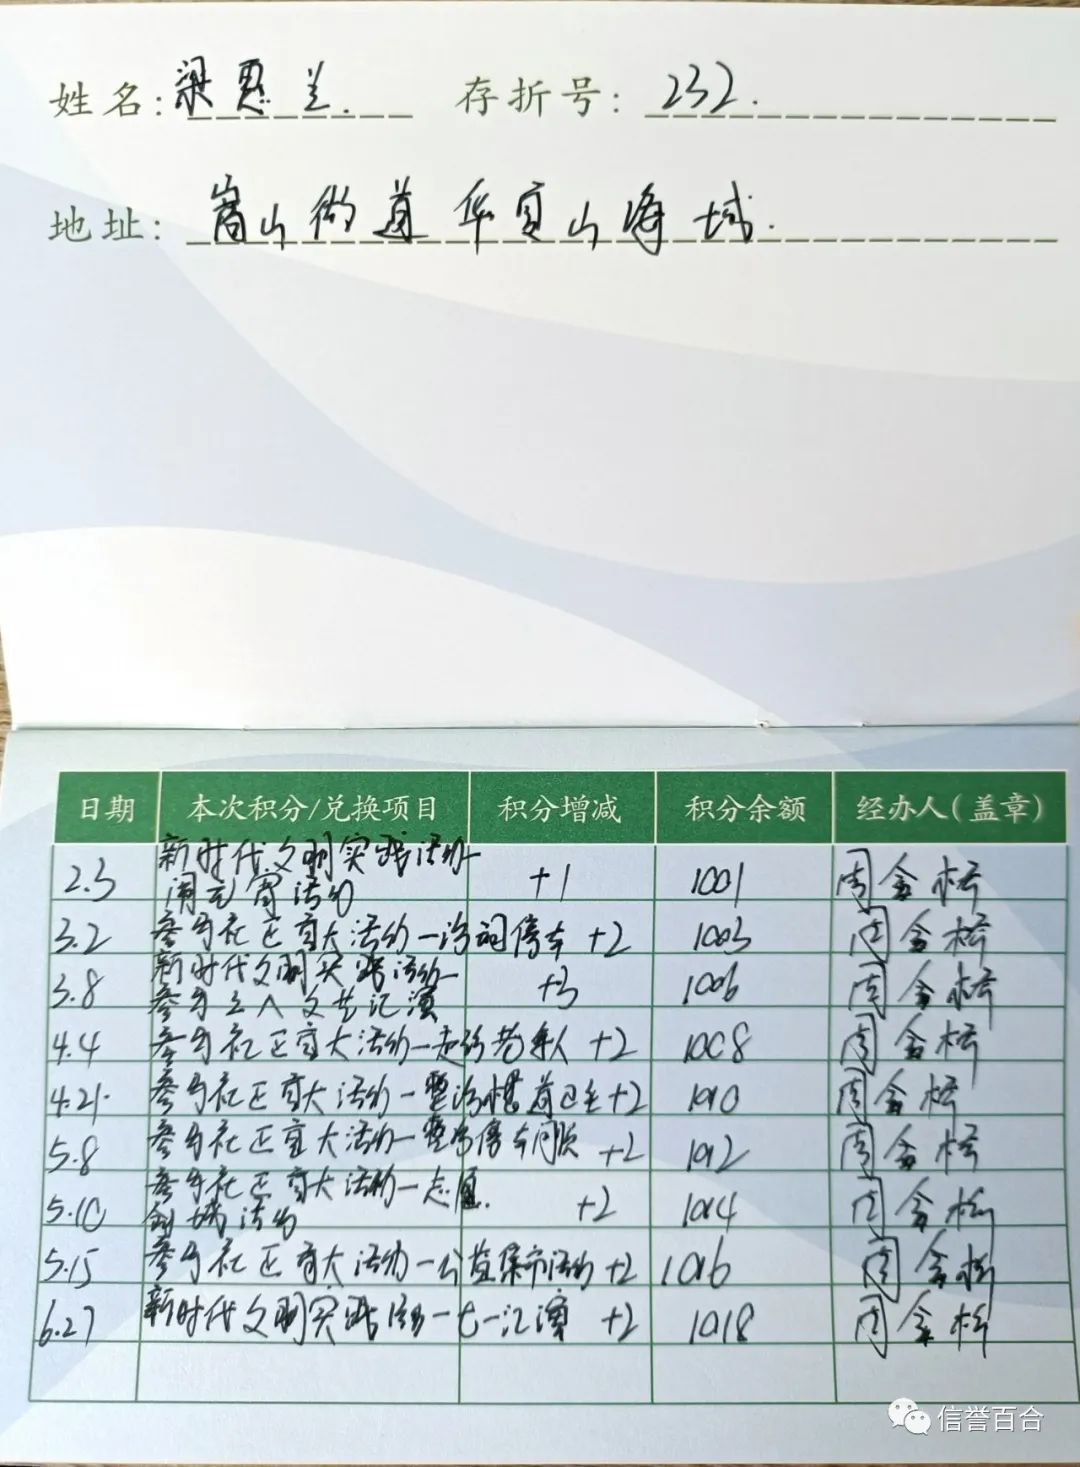 姓名: 梁恩兰. 存折号: 232.
地址: 嵩山街道华宜山海城.
日期 本次积分/兑换项目 积分增减 积分余额 经办人(盖章)
新时代文明实践活动—
2.3 +1 1001 周金桥
闹元宵活动
3.2 参与社区重大活动—治理停车 +2 1003 周金桥
新时代文明实践活动—
3.8 +3 1006 周金桥
参与三八文艺汇演
4.4 参与社区重大活动—老年人 +2 1008 周金桥
4.21. 参与社区重大活动—整治楼道卫生 +2 1010 周金桥
5.8 参与社区重大活动—整治停车问题 +2 1012 周金桥
参与社区重大活动—志愿.
5.10 +2 1014 周金桥
创城活动
5.15 参与社区重大活动—公益集市活动 +2 1016 周金桥
6.27 新时代文明实践活动—七一汇演 +2 1018 周金桥
信誉百合